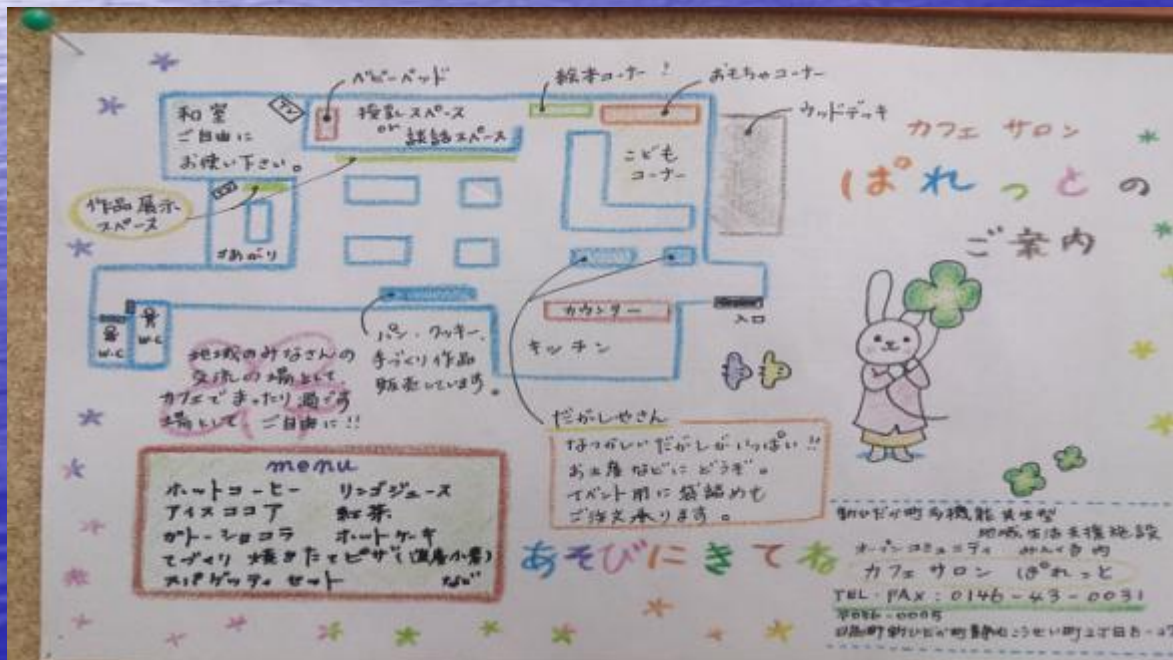 ベビーベッド
絵本コーナー!
おもちゃコーナー
ウッドデッキ
和室
ご自由に
お使い下さい。
授乳スペース
or
談話スペース
こども
コーナー
作品展示
スペース
小あがり
W・C
W・C
カウンター
キッチン
入口
パン・クッキー、
手づくり作品
販売しています。
地域のみなさんの
交流の場として、
カフェでまったり過ごす
場として、ご自由に!!
だがしやさん
なつかしいだがしがいっぱい!!
お土産などにどうぞ。
イベント用に袋詰めも
ご注文承ります。
カフェ サロン
ぱれっとの
ご案内
menu
ホットコーヒー リンゴジュース
アイスココア 紅茶
ガトーショコラ ホットケーキ
てづくり 焼きたてピザ
スパゲッティ セット など
あそびにきてね
新ひだか町多機能共生型
地域生活支援施設
オープンコミュニティ みんぐる内
カフェ サロン ぱれっと
TEL・FAX:0146-43-0031
〒056-0005
日高郡新ひだか町静内こうせい町2丁目